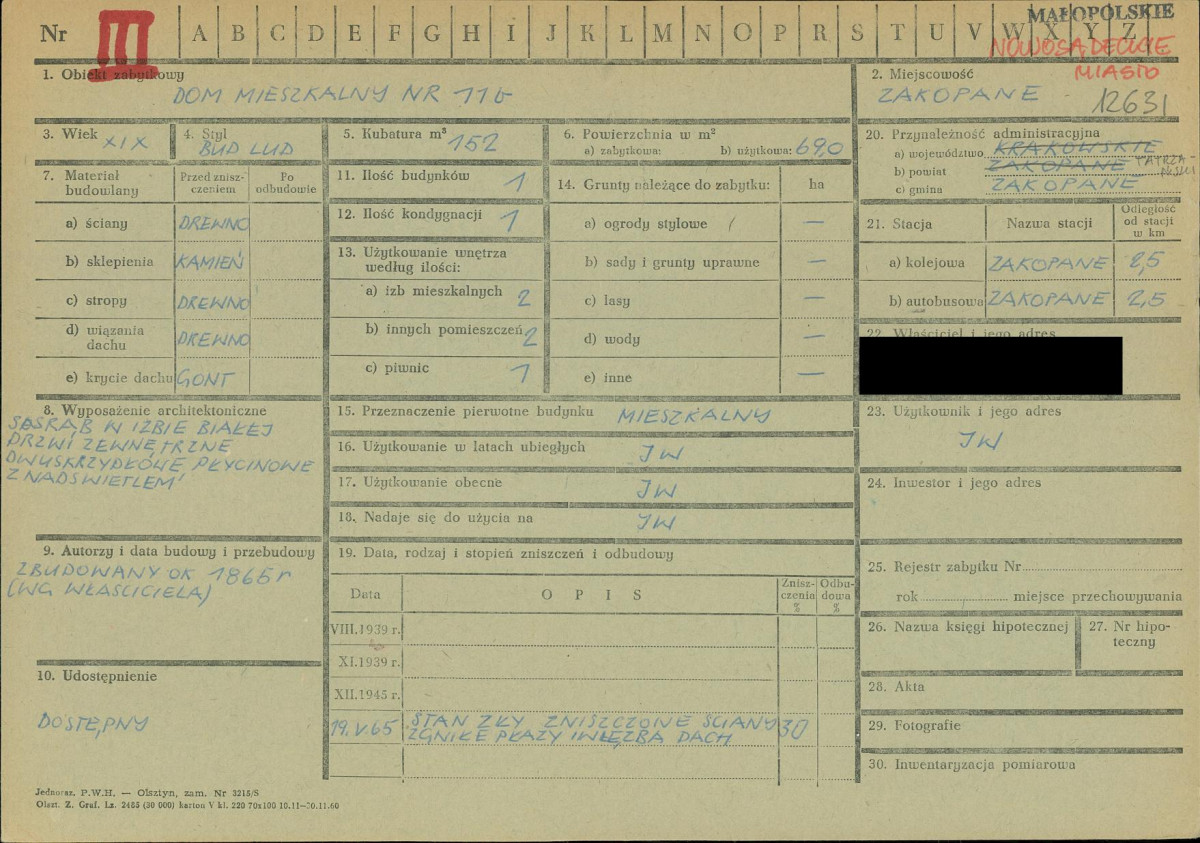 Nr III A B C D E F G H I J K L M N O P R S T U V W X Y Z
MAŁOPOLSKIE
NOWOSĄDECKIE
MIASTO
1. Obiekt zabytkowy
DOM MIESZKALNY NR 11b
2. Miejscowość
ZAKOPANE
12631
3. Wiek XIX
4. Styl
BUD LUD
5. Kubatura m³ 152
6. Powierzchnia w m²
a) zabytkowa: b) użytkowa: 69,0
20. Przynależność administracyjna
a) województwo KRAKOWSKIE
b) powiat ZAKOPANE TATRZAŃSKI
c) gmina ZAKOPANE
7. Materiał budowlany
Przed zniszczeniem
Po odbudowie
a) ściany DREWNO
b) sklepienia KAMIEŃ
c) stropy DREWNO
d) wiązania dachu DREWNO
e) krycie dachu GONT
11. Ilość budynków 1
12. Ilość kondygnacji 1
13. Użytkowanie wnętrza
według ilości:
a) izb mieszkalnych 2
b) innych pomieszczeń 2
c) piwnic 1
14. Grunty należące do zabytku: ha
a) ogrody stylowe —
b) sady i grunty uprawne —
c) lasy —
d) wody —
e) inne —
21. Stacja Nazwa stacji Odległość od stacji w km
a) kolejowa ZAKOPANE 2,5
b) autobusowa ZAKOPANE 2,5
22. Właściciel i jego adres
8. Wyposażenie architektoniczne
SOSRĄB W IZBIE BIAŁEJ
DRZWI ZEWNĘTRZNE
DWUSKRZYDŁOWE, PŁYCINOWE
Z NADŚWIETLEM
15. Przeznaczenie pierwotne budynku MIESZKALNY
16. Użytkowanie w latach ubiegłych JW
17. Użytkowanie obecne JW
18. Nadaje się do użycia na JW
23. Użytkownik i jego adres
JW
24. Inwestor i jego adres
9. Autorzy i data budowy i przebudowy
ZBUDOWANY OK 1865 r
(WG WŁAŚCICIELA)
10. Udostępnienie
DOSTĘPNY
19. Data, rodzaj i stopień zniszczeń i odbudowy
Data OPIS Zniszczenia % Odbudowa %
VIII.1939 r.
XI.1939 r.
XII.1945 r.
19.V.65 STAN ZŁY, ZNISZCZONE ŚCIANY 30
ZGNIŁE PŁAZY I WIĘŹBA DACH
25. Rejestr zabytku Nr
rok miejsce przechowywania
26. Nazwa księgi hipotecznej
27. Nr hipoteczny
28. Akta
29. Fotografie
30. Inwentaryzacja pomiarowa
Jednoraz. P.W.H. — Olsztyn, zam. Nr 3215/S
Olszt. Z. Graf. Lz. 2485 (30 000) karton V kl. 220 70x100 10.11—30.11.60